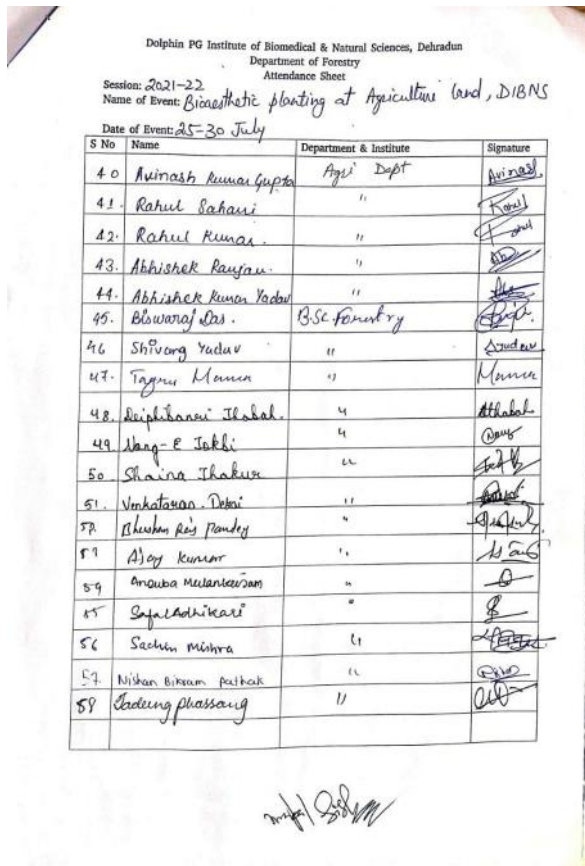 Dolphin PG Institute of Biomedical & Natural Sciences, Dehradun
Department of Forestry
Attendance Sheet
Session: 2021-22
Name of Event: Bioaesthetic planting at Agriculture land, DIBNS
Date of Event: 25-30 July
S No Name Department & Institute Signature
40 Avinash Kumar Gupta Agri Dept Avinash
41. Rahul Sahani " Rahul
42. Rahul Kumar. " Rahul
43. Abhishek Ranjan. "
44. Abhishek Kumar Yadav "
45. Biswaraj Das. B.Sc. Forestry
46 Shivang Yadav "
47. "
48. "
49. Nang-E "
50 Shaina Thakur "
51. Desai "
52. Bhushan Raj Pandey "
53 Ajay Kumar "
54 Anouba "
55 Safal Adhikari "
56 Sachin Mishra "
57. Nishan Bikram Pathak "
58 Phassang "